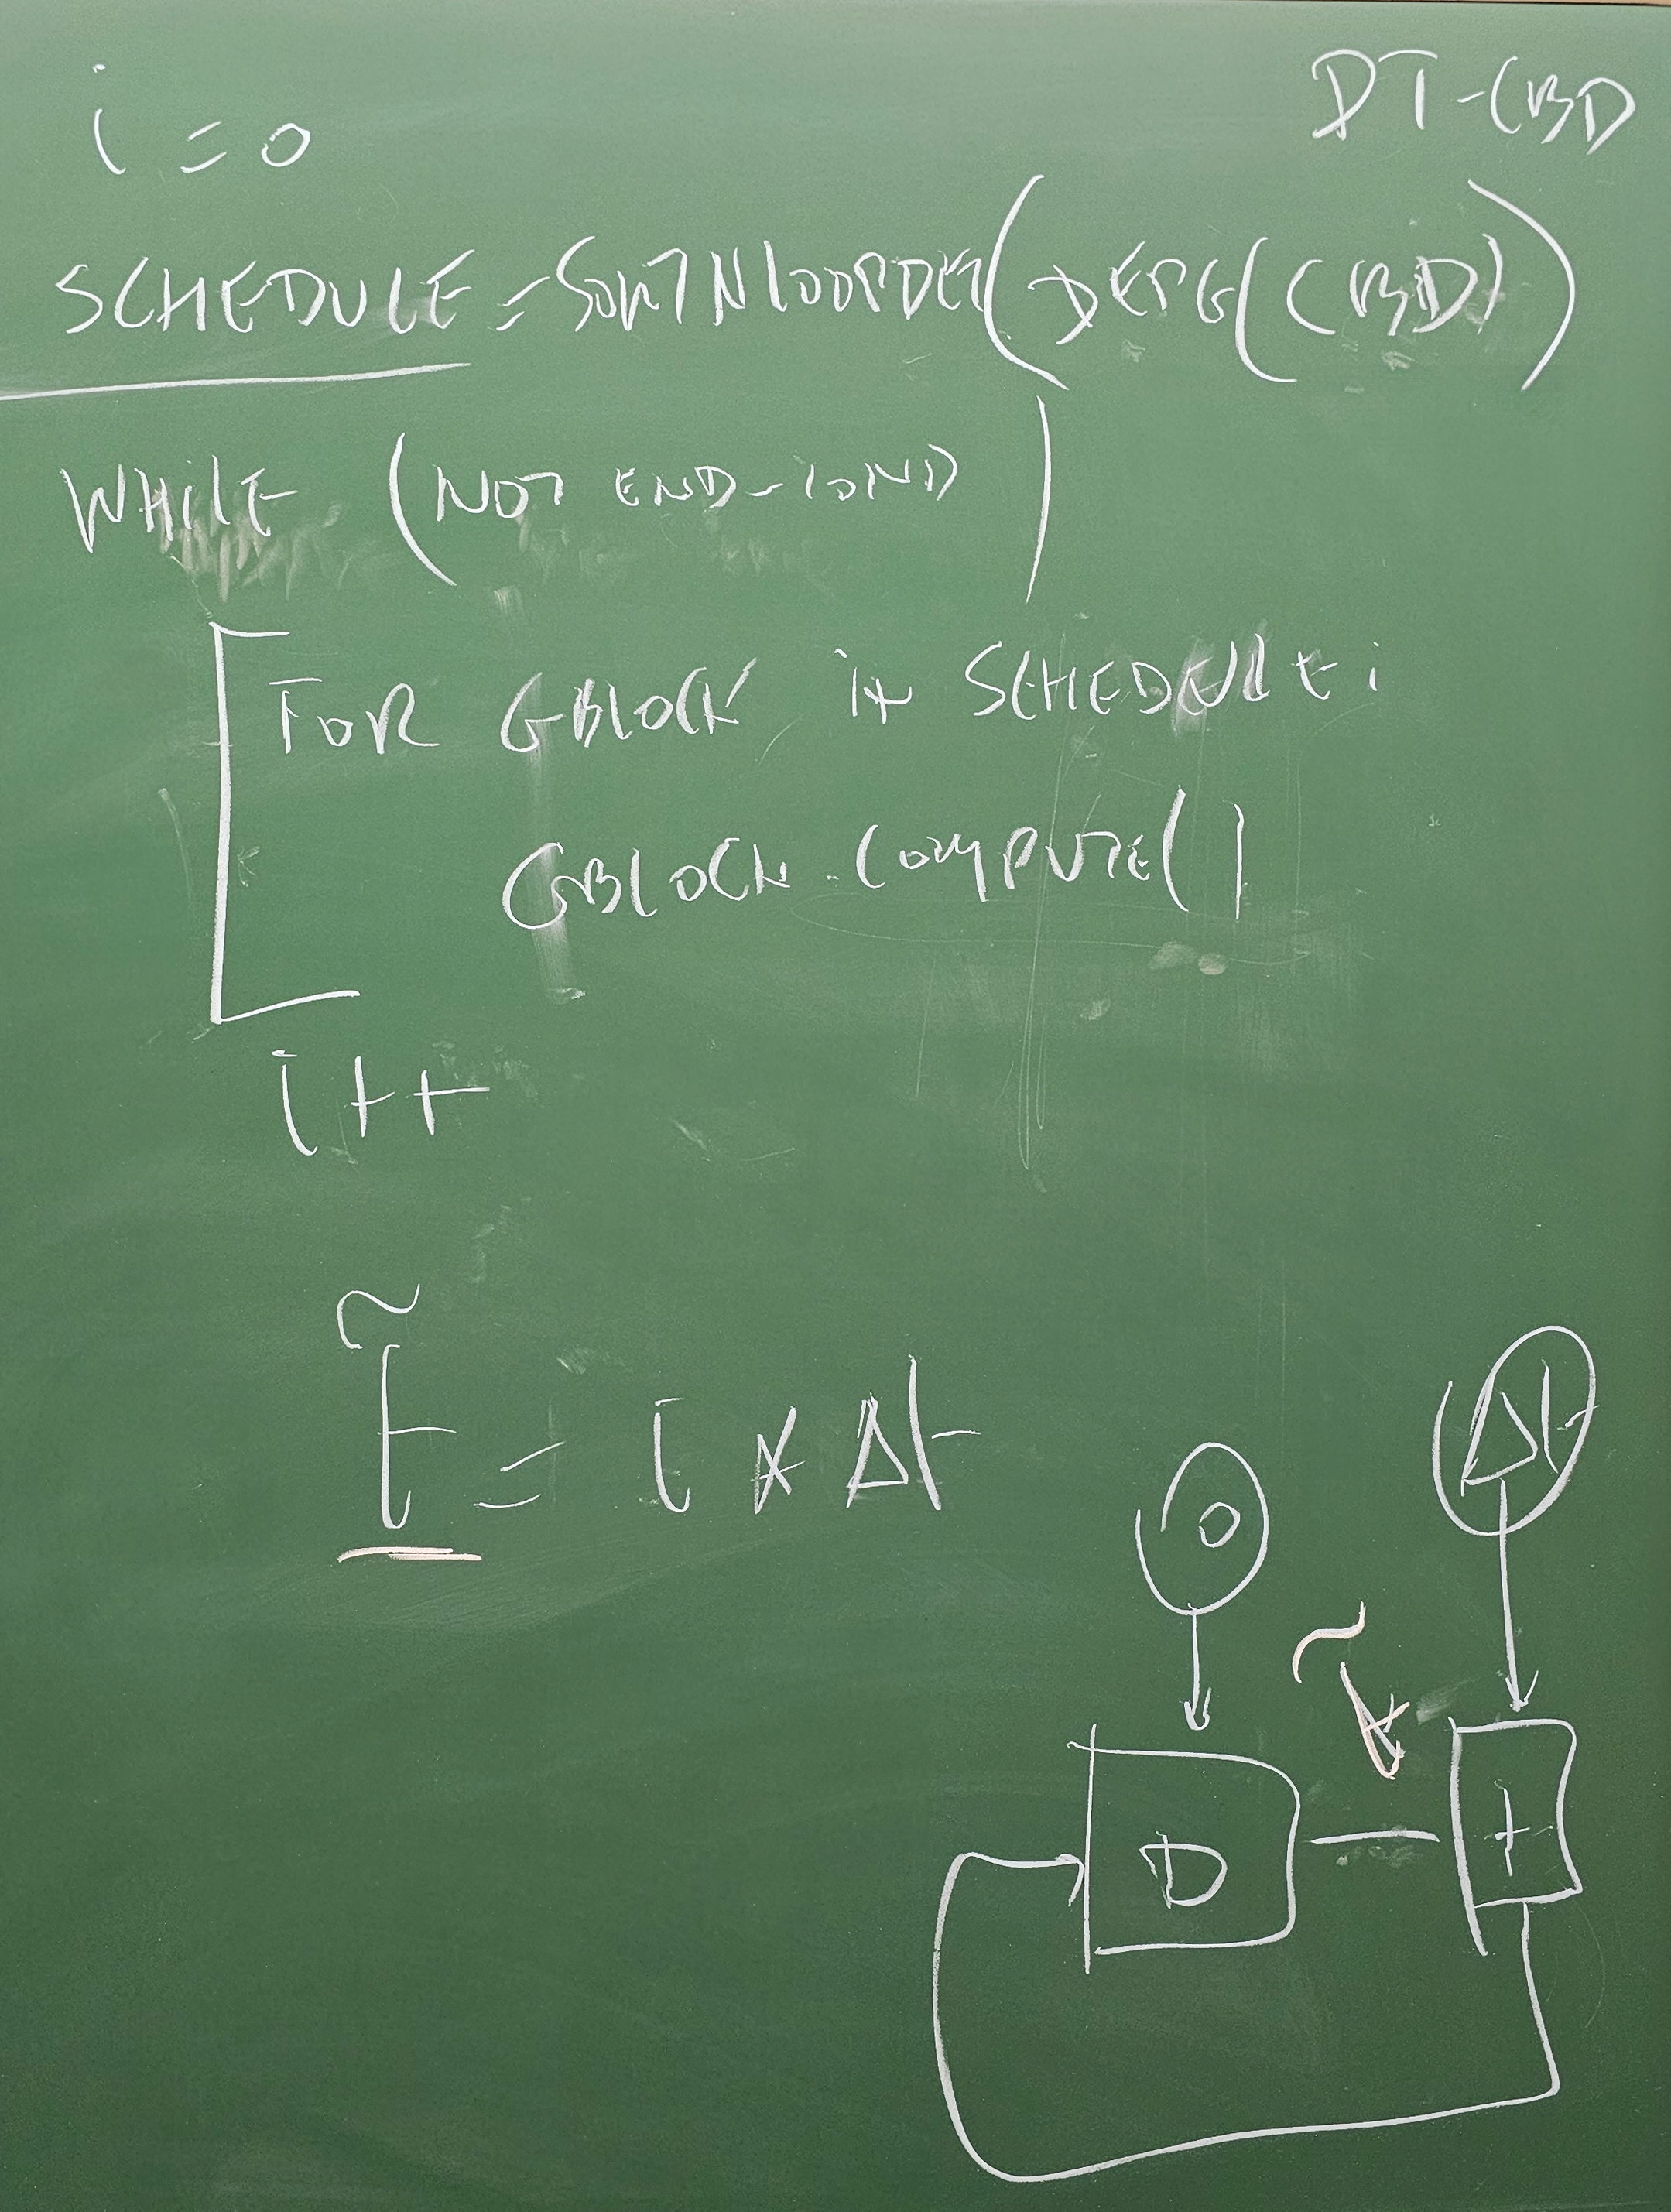 DT-CBD
i = 0
SCHEDULE = SORTNLOOPDET(DEPG(CBD))
WHILE (NOT END-COND)
FOR GBLOCK IN SCHEDULE:
GBLOCK.COMPUTE()
i++
t̃ = i * Δt
Δt
0
t̃
D
+